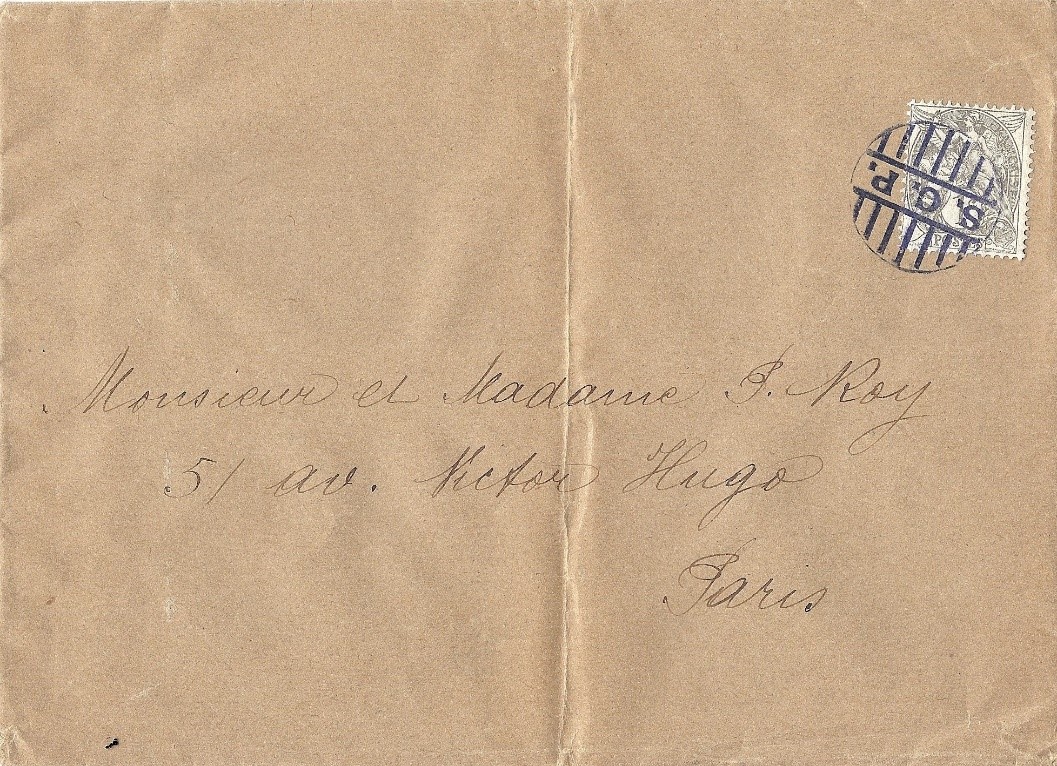 S. G. P.
POSTES
Monsieur et Madame P. Roy
51 av. Victor Hugo
Paris